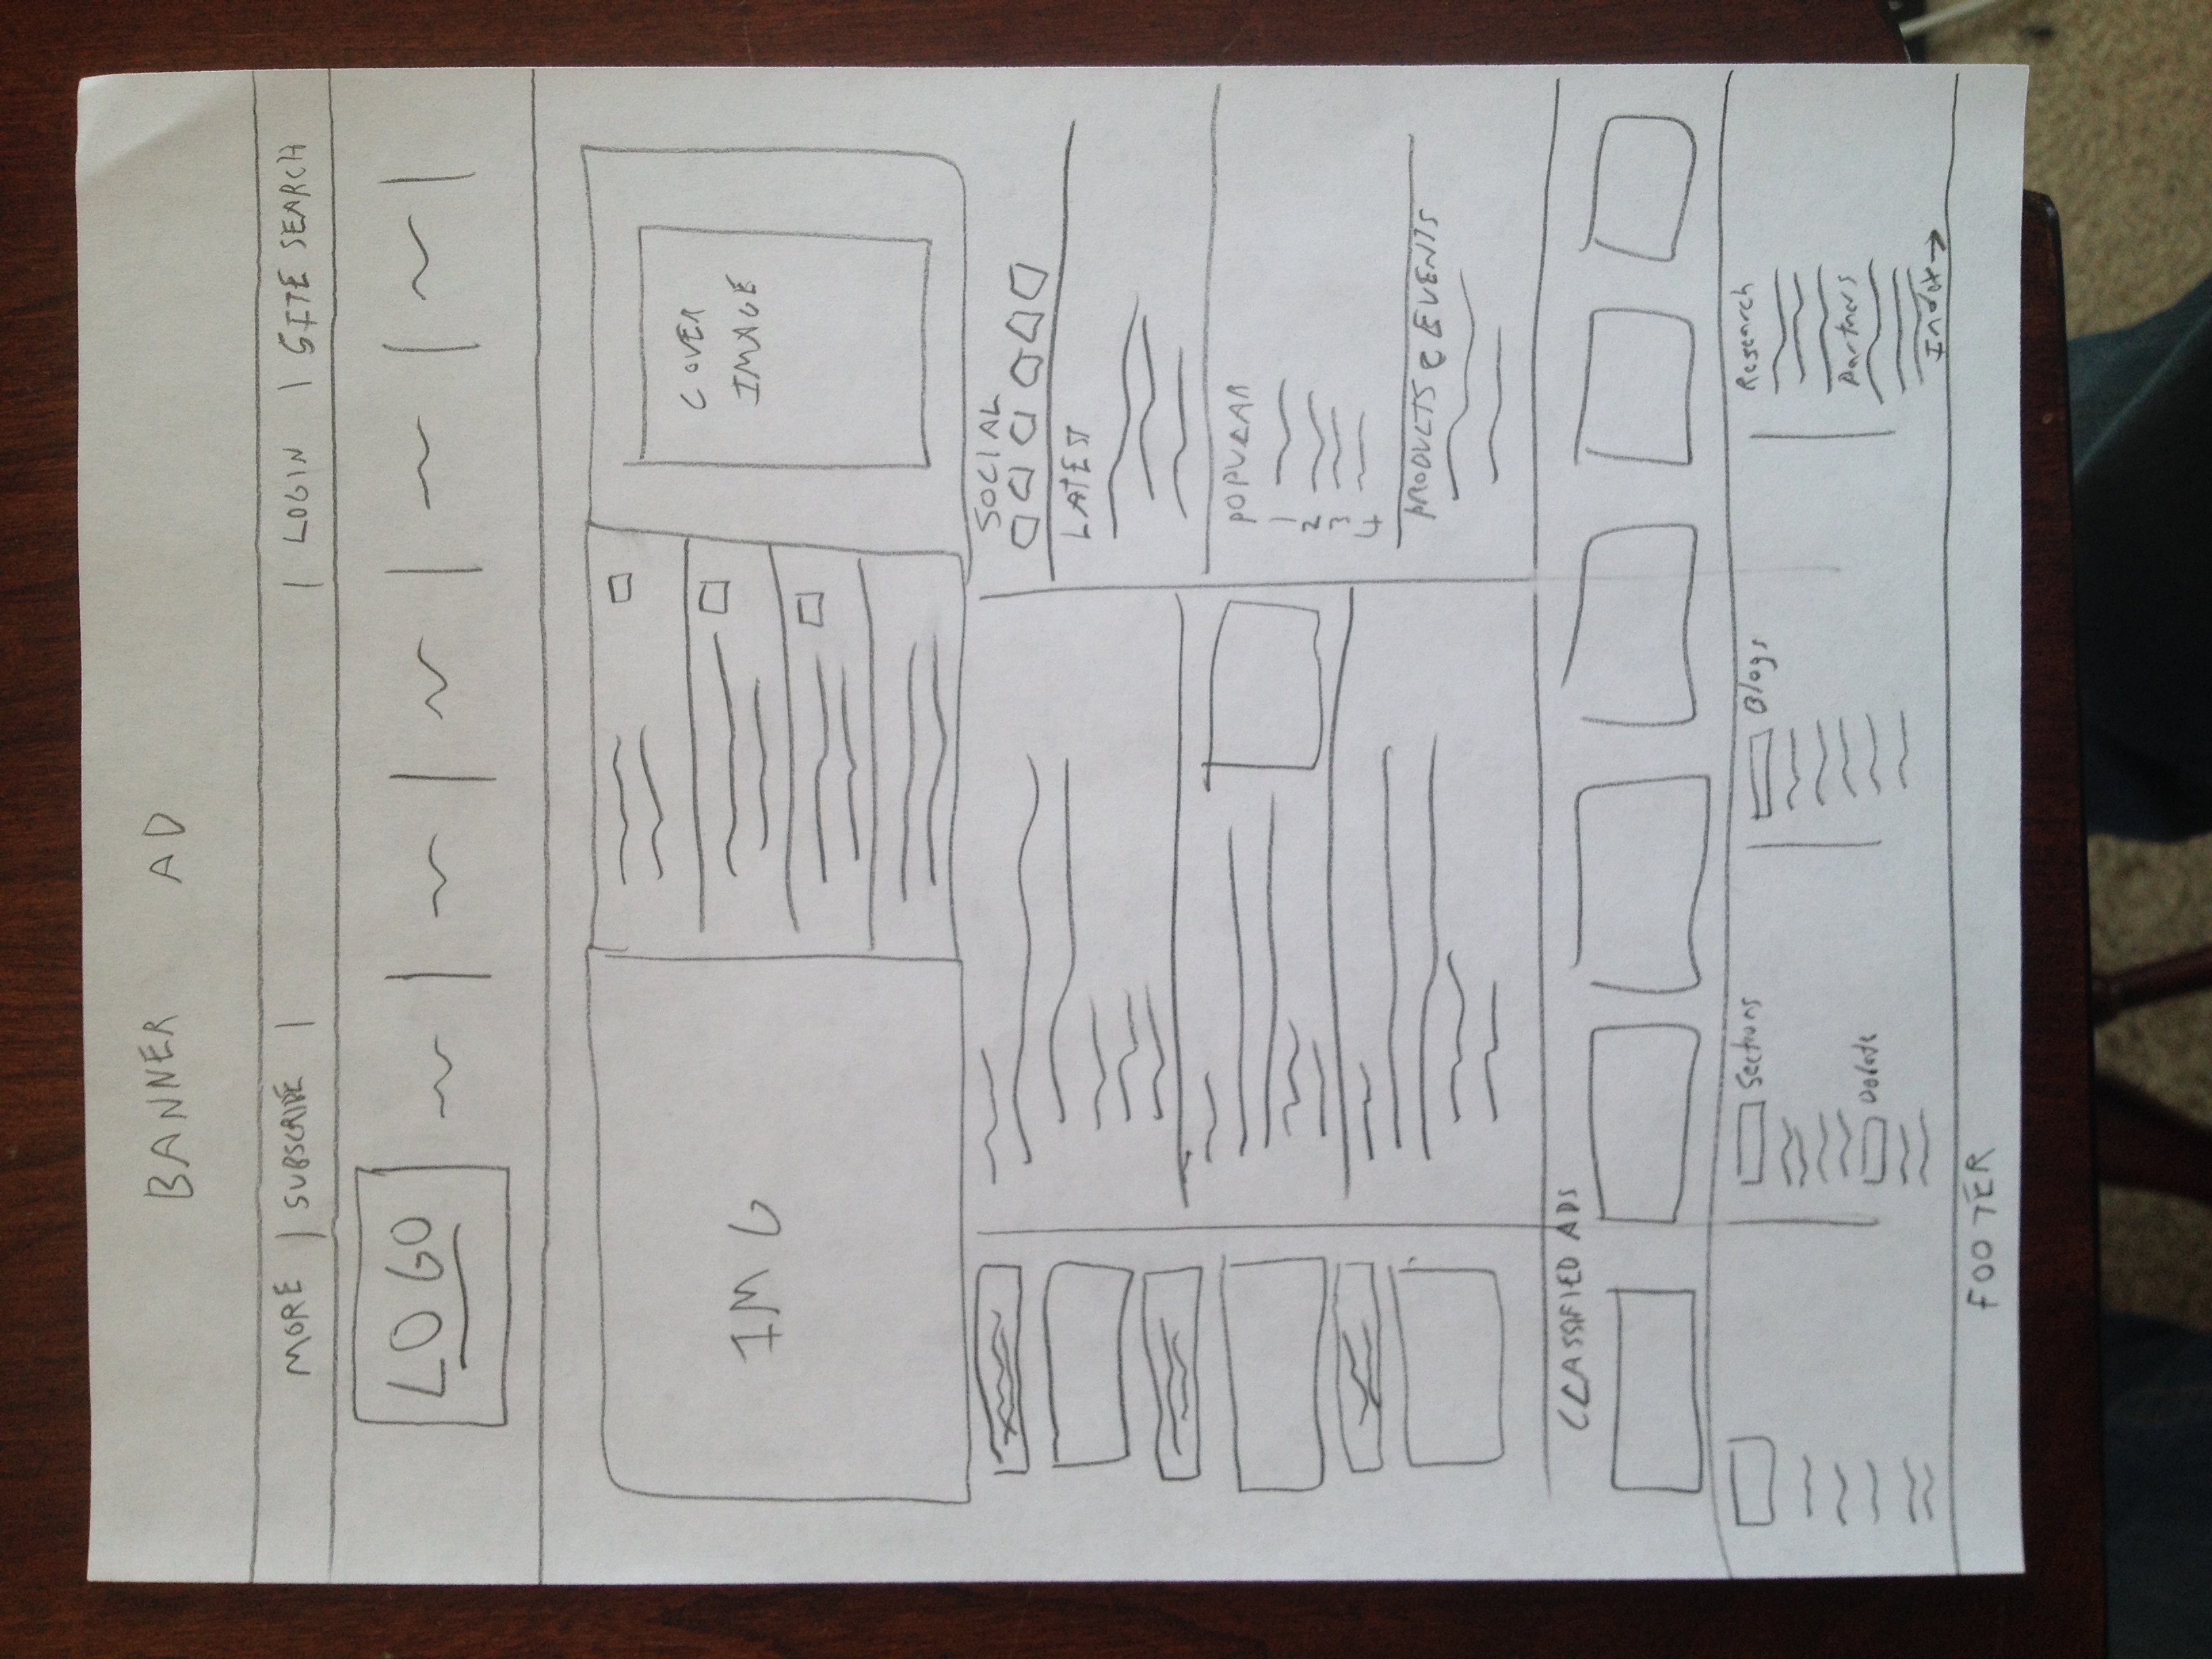 BANNER AD
MORE | SUBSCRIBE | | LOGIN | SITE SEARCH
LOGO
IMG
COVER
IMAGE
SOCIAL
LATEST
POPULAR
1
2
3
4
PRODUCTS & EVENTS
CLASSIFIED ADS
Sections
Debate
Blogs
Research
Partners
Index →
FOOTER